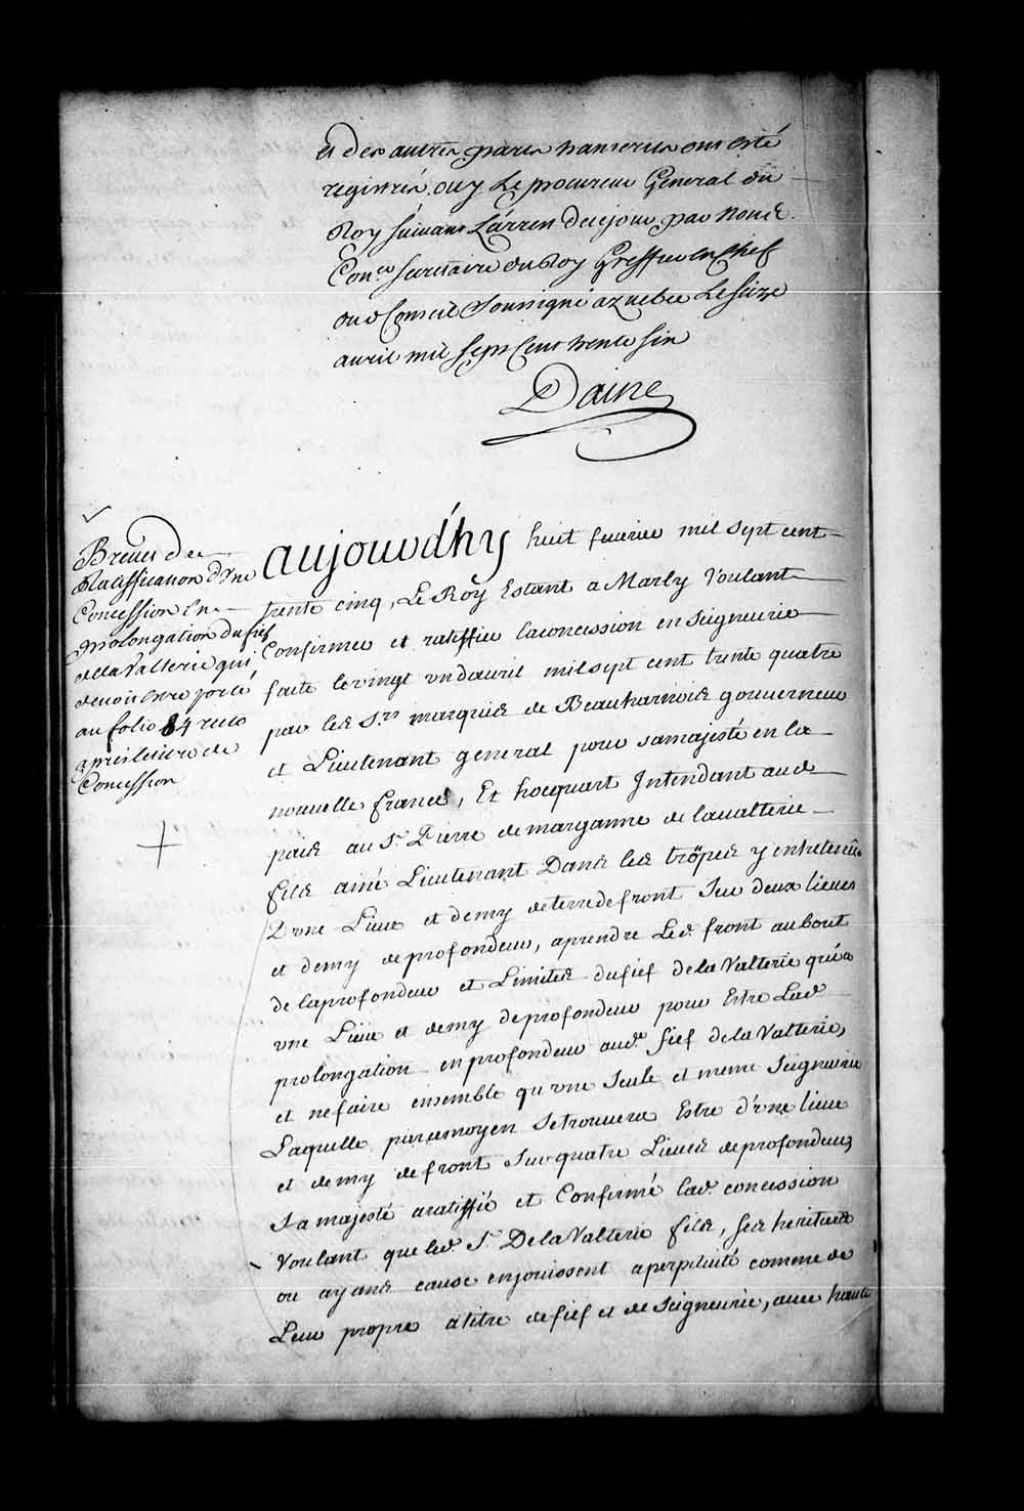 et des autres parts transcrits ont esté
registrés. ouy Le procureur General du
Roy suivant L'arrest de ce jour par Nous
Con.er secretaire du Roy Greffier en Chef
dud Conseil Soussigné a quebec Le seize
avril mil sept Cent trente six
Daine
Brevet de
Ratiffication d'Une
Concession En
prolongation du fief
de la Valterie qui
devoit estre porté
au folio 84 recto
apres le titre de
Concession
aujourd'hy huit fevrier mil sept cent
trente cinq, Le Roy Estant a Marly Voulant
Confirmer et ratiffier la concession en seigneurie
faite le vingt un d'avril mil sept cent trente quatre
par les S.rs marquis de Beauharnois gouverneur
et Lieutenant general pour sa majesté en la
nouvelle france, Et hocquart Intendant aud
pais au S. Pierre de marganne de lavalterie
fils ainé Lieutenant Dans les tröpes y entretenües
D'une Lieue et demy de terre de front sur deux lieues
et demy de profondeur, a prendre Led. front au bout
de la profondeur et Limites du fief de la Valterie qui a
une Lieue et demy de profondeur pour Estre Lad
prolongation en profondeur aud. fief de la Valterie,
et ne faire ensemble qu'une Seule et meme Seigneurie
Laquelle par ce moyen se trouvera Estre d'une lieue
et demy de front sur quatre Lieues de profondeur,
Sa majesté a ratiffié et Confirmé lad. concession
Voulant que led. S. De la Valterie fils, ses heritiers
ou ayans cause en jouissent a perpetuité comme de
Leur propre a titre de fief et de seigneurie, avec haute